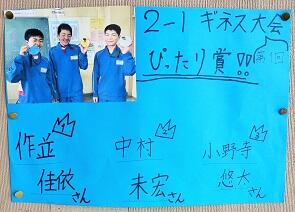 2-1 ギネス大会
第1回
ぴったり賞!!
作並
佳依さん
中村
未宏さん
小野寺
悠太さん